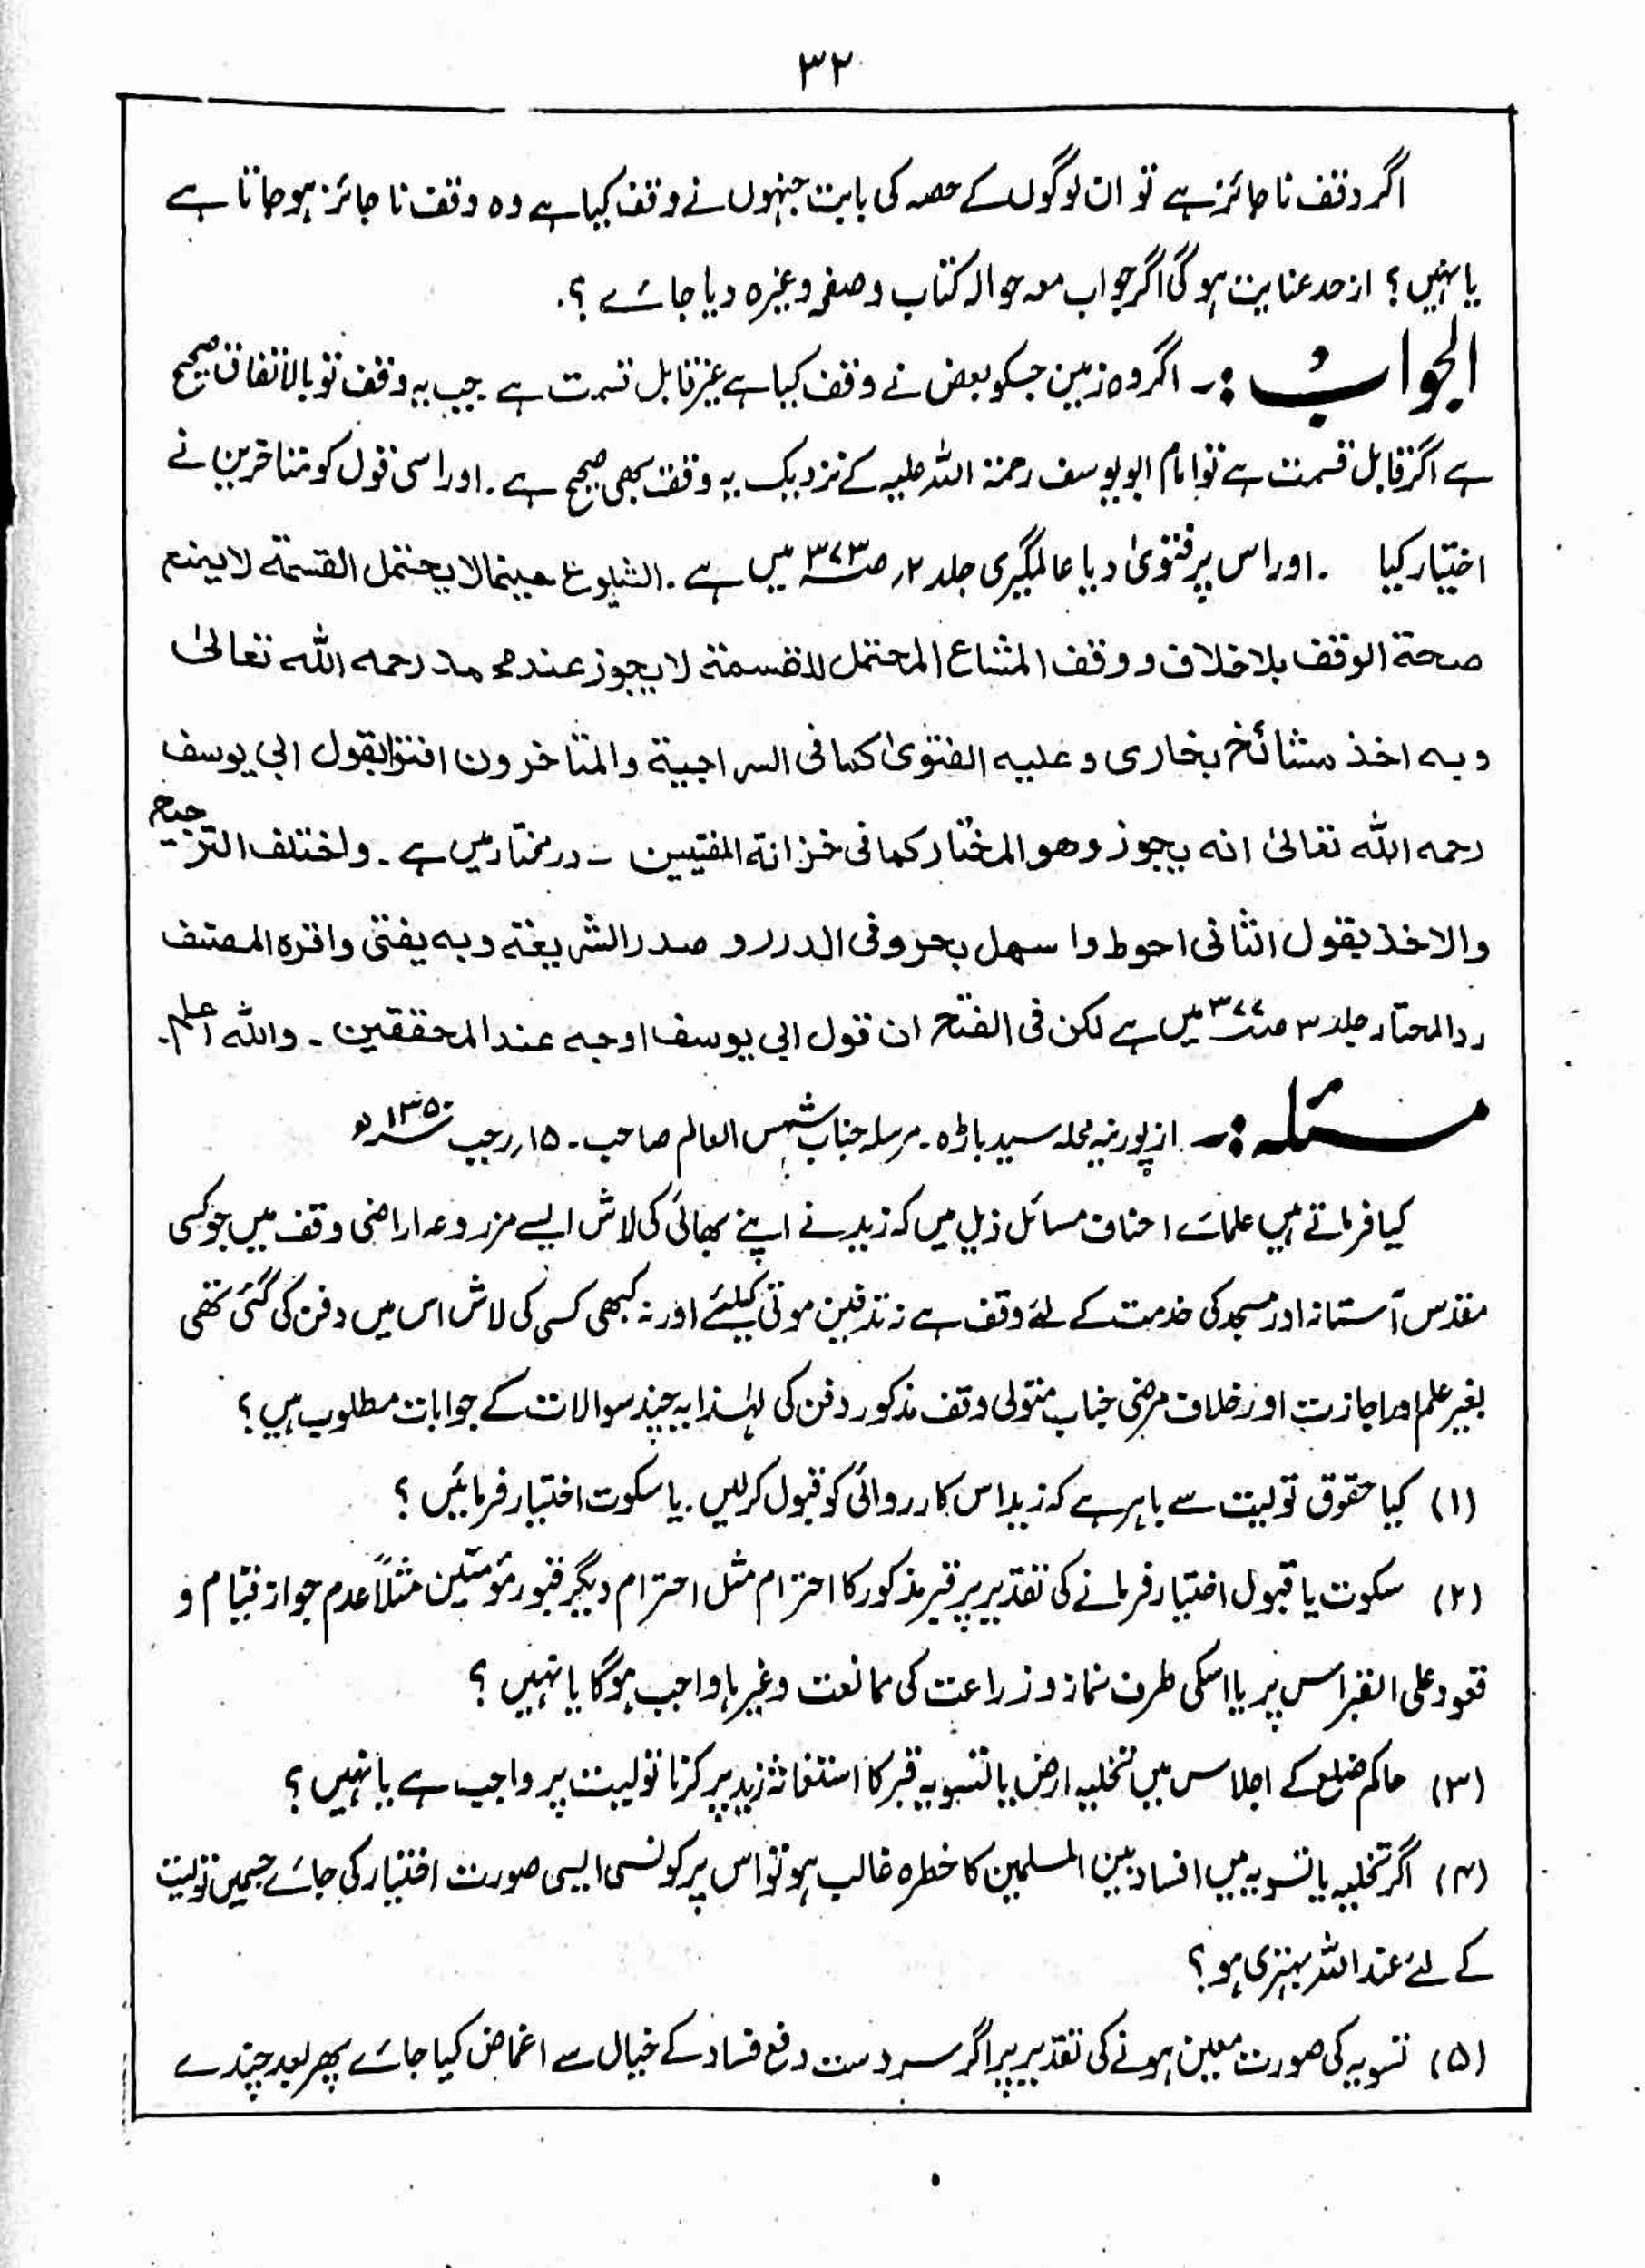 ۳۲
اگر وقف ناجائز ہے تو ان لوگوں کے حصہ کی بابت جنہوں نے وقف کیا ہے وہ وقف ناجائز ہوجاتا ہے
یا نہیں؟ از حد عنایت ہوگی اگر جواب معہ حوالہ کتاب و صفحہ وغیرہ دیا جائے؟.
الجوابُ :۔ اگر وہ زمین جسکو بعض نے وقف کیا ہے غیر قابل قسمت ہے جب یہ وقف تو بالاتفاق صحیح
ہے اگر قابل قسمت ہے تو امام ابویوسف رحمۃ اللہ علیہ کے نزدیک یہ وقف بھی صحیح ہے. اور اسی قول کو متاخرین نے
اختیار کیا ۔ اور اس پر فتویٰ دیا عالمگیری جلد ۲, صـ۳۷۳ میں ہے. الشیوع حینما لا یحتمل القسمۃ لا یمنع
صحۃ الوقف بلا خلاف ووقف المشاع المحتمل للقسمۃ لا یجوز عند محمد رحمہ اللہ تعالیٰ
وبہ اخذ مشائخ بخاری وعلیہ الفتویٰ کما فی السراجیۃ والمتاخرون افتوا بقول ابی یوسف
رحمہ اللہ تعالیٰ انہ یجوز وھو المختار کما فی خزانۃ المفتیین ۔ درمختار میں ہے ۔ واختلف الترجیح
والاخذ بقول الثانی احوط واسھل بحر وفی الدرر و صدر الشریعۃ وبہ یفتیٰ واقرہ المصنف
ردالمحتار جلد ۳ صـ۳۷۷ میں ہے لکن فی الفتح ان قول ابی یوسف اوجہ عند المحققین ۔ واللہ اعلم.
مسئلہ :۔ از پورنیہ محلہ سید باڑہ ۔ مرسلہ جناب شمس العالم صاحب ۔ ۱۵, رجب ۱۳۵۰ھ
کیا فرماتے ہیں علمائے احناف مسائل ذیل میں کہ زید نے اپنے بھائی کی لاش ایسے مزروعہ اراضی وقف میں جو کسی
مقدس آستانہ اور مسجد کی خدمت کے لئے وقف ہے نہ تدفین موتی کیلئے اور نہ کبھی کسی کی لاش اس میں دفن کی گئی تھی
بغیر علم اور اجازت اور خلاف مرضی جناب متولی وقف مذکور دفن کی لہٰذا یہ چند سوالات کے جوابات مطلوب ہیں؟
(۱) کیا حقوق تولیت سے باہر ہے کہ زید اس کارروائی کو قبول کرلیں. یا سکوت اختیار فرمائیں؟
(۲) سکوت یا قبول اختیار فرمانے کی تقدیر پر قبر مذکور کا احترام مثل احترام دیگر قبور مؤمنین مثلاً عدم جواز قیام و
قعود علی القبر اس پر یا اسکی طرف نماز و زراعت کی ممانعت وغیرہا واجب ہوگا یا نہیں؟
(۳) حاکم ضلع کے اجلاس میں تخلیہ ارض یا تسویہ قبر کا استغاثہ زید پر کرنا تولیت پر واجب ہے یا نہیں؟
(۴) اگر تخلیہ یا تسویہ میں افساد بین المسلمین کا خطرہ غالب ہو تو اس پر کونسی ایسی صورت اختیار کی جائے جسمیں تولیت
کے لئے عند اللہ بہتری ہو؟
(۵) تسویہ کی صورت معین ہونے کی تقدیر پر اگر سردست دفع فساد کے خیال سے اغماض کیا جائے پھر بعد چندے